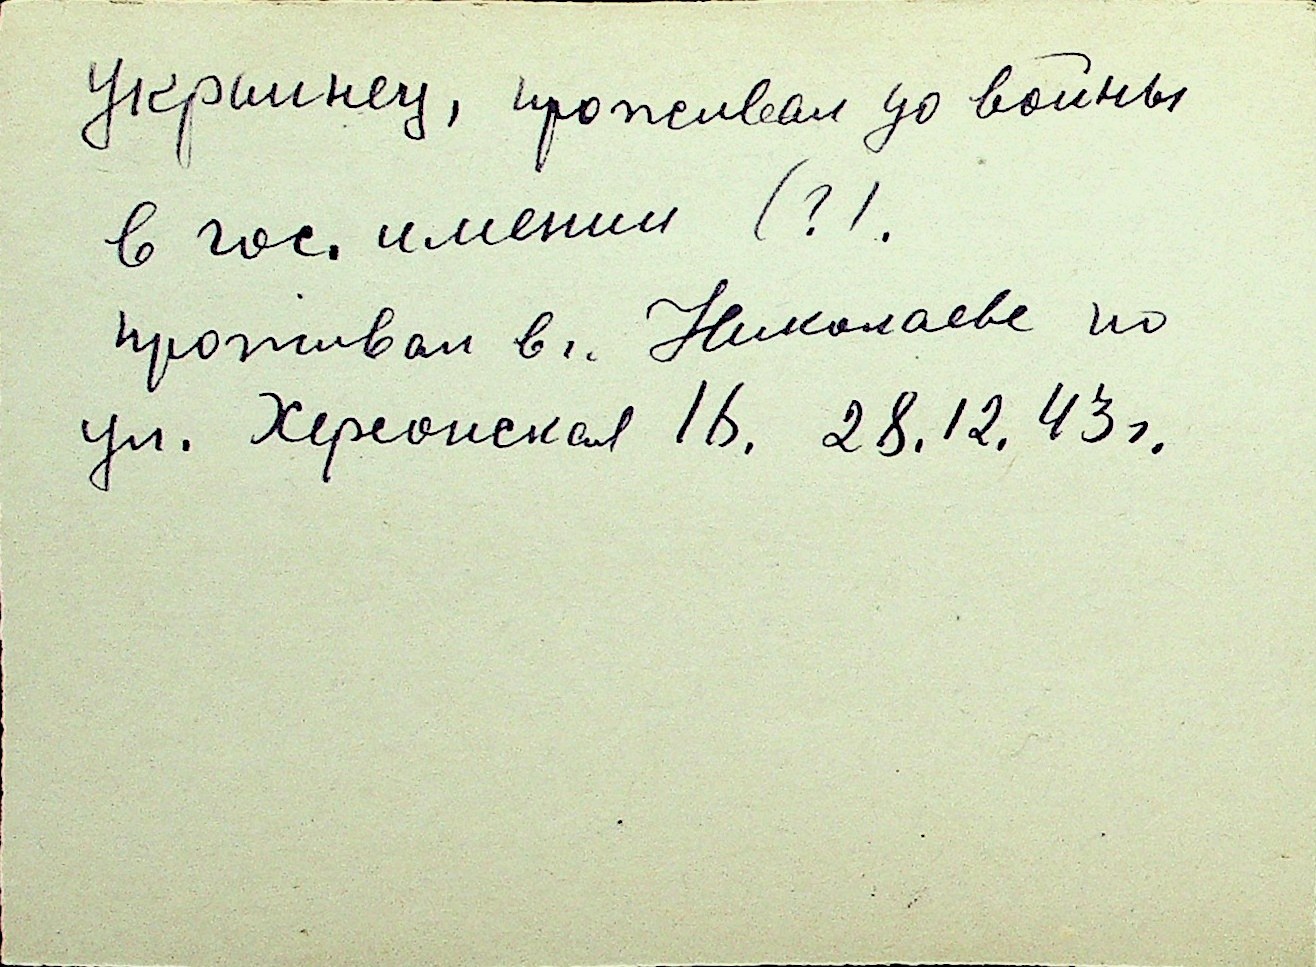 Украинец, проживал до войны
в гос. имении (?).
проживал в г. Николаеве по
ул. Херсонская 16. 28.12.43 г.